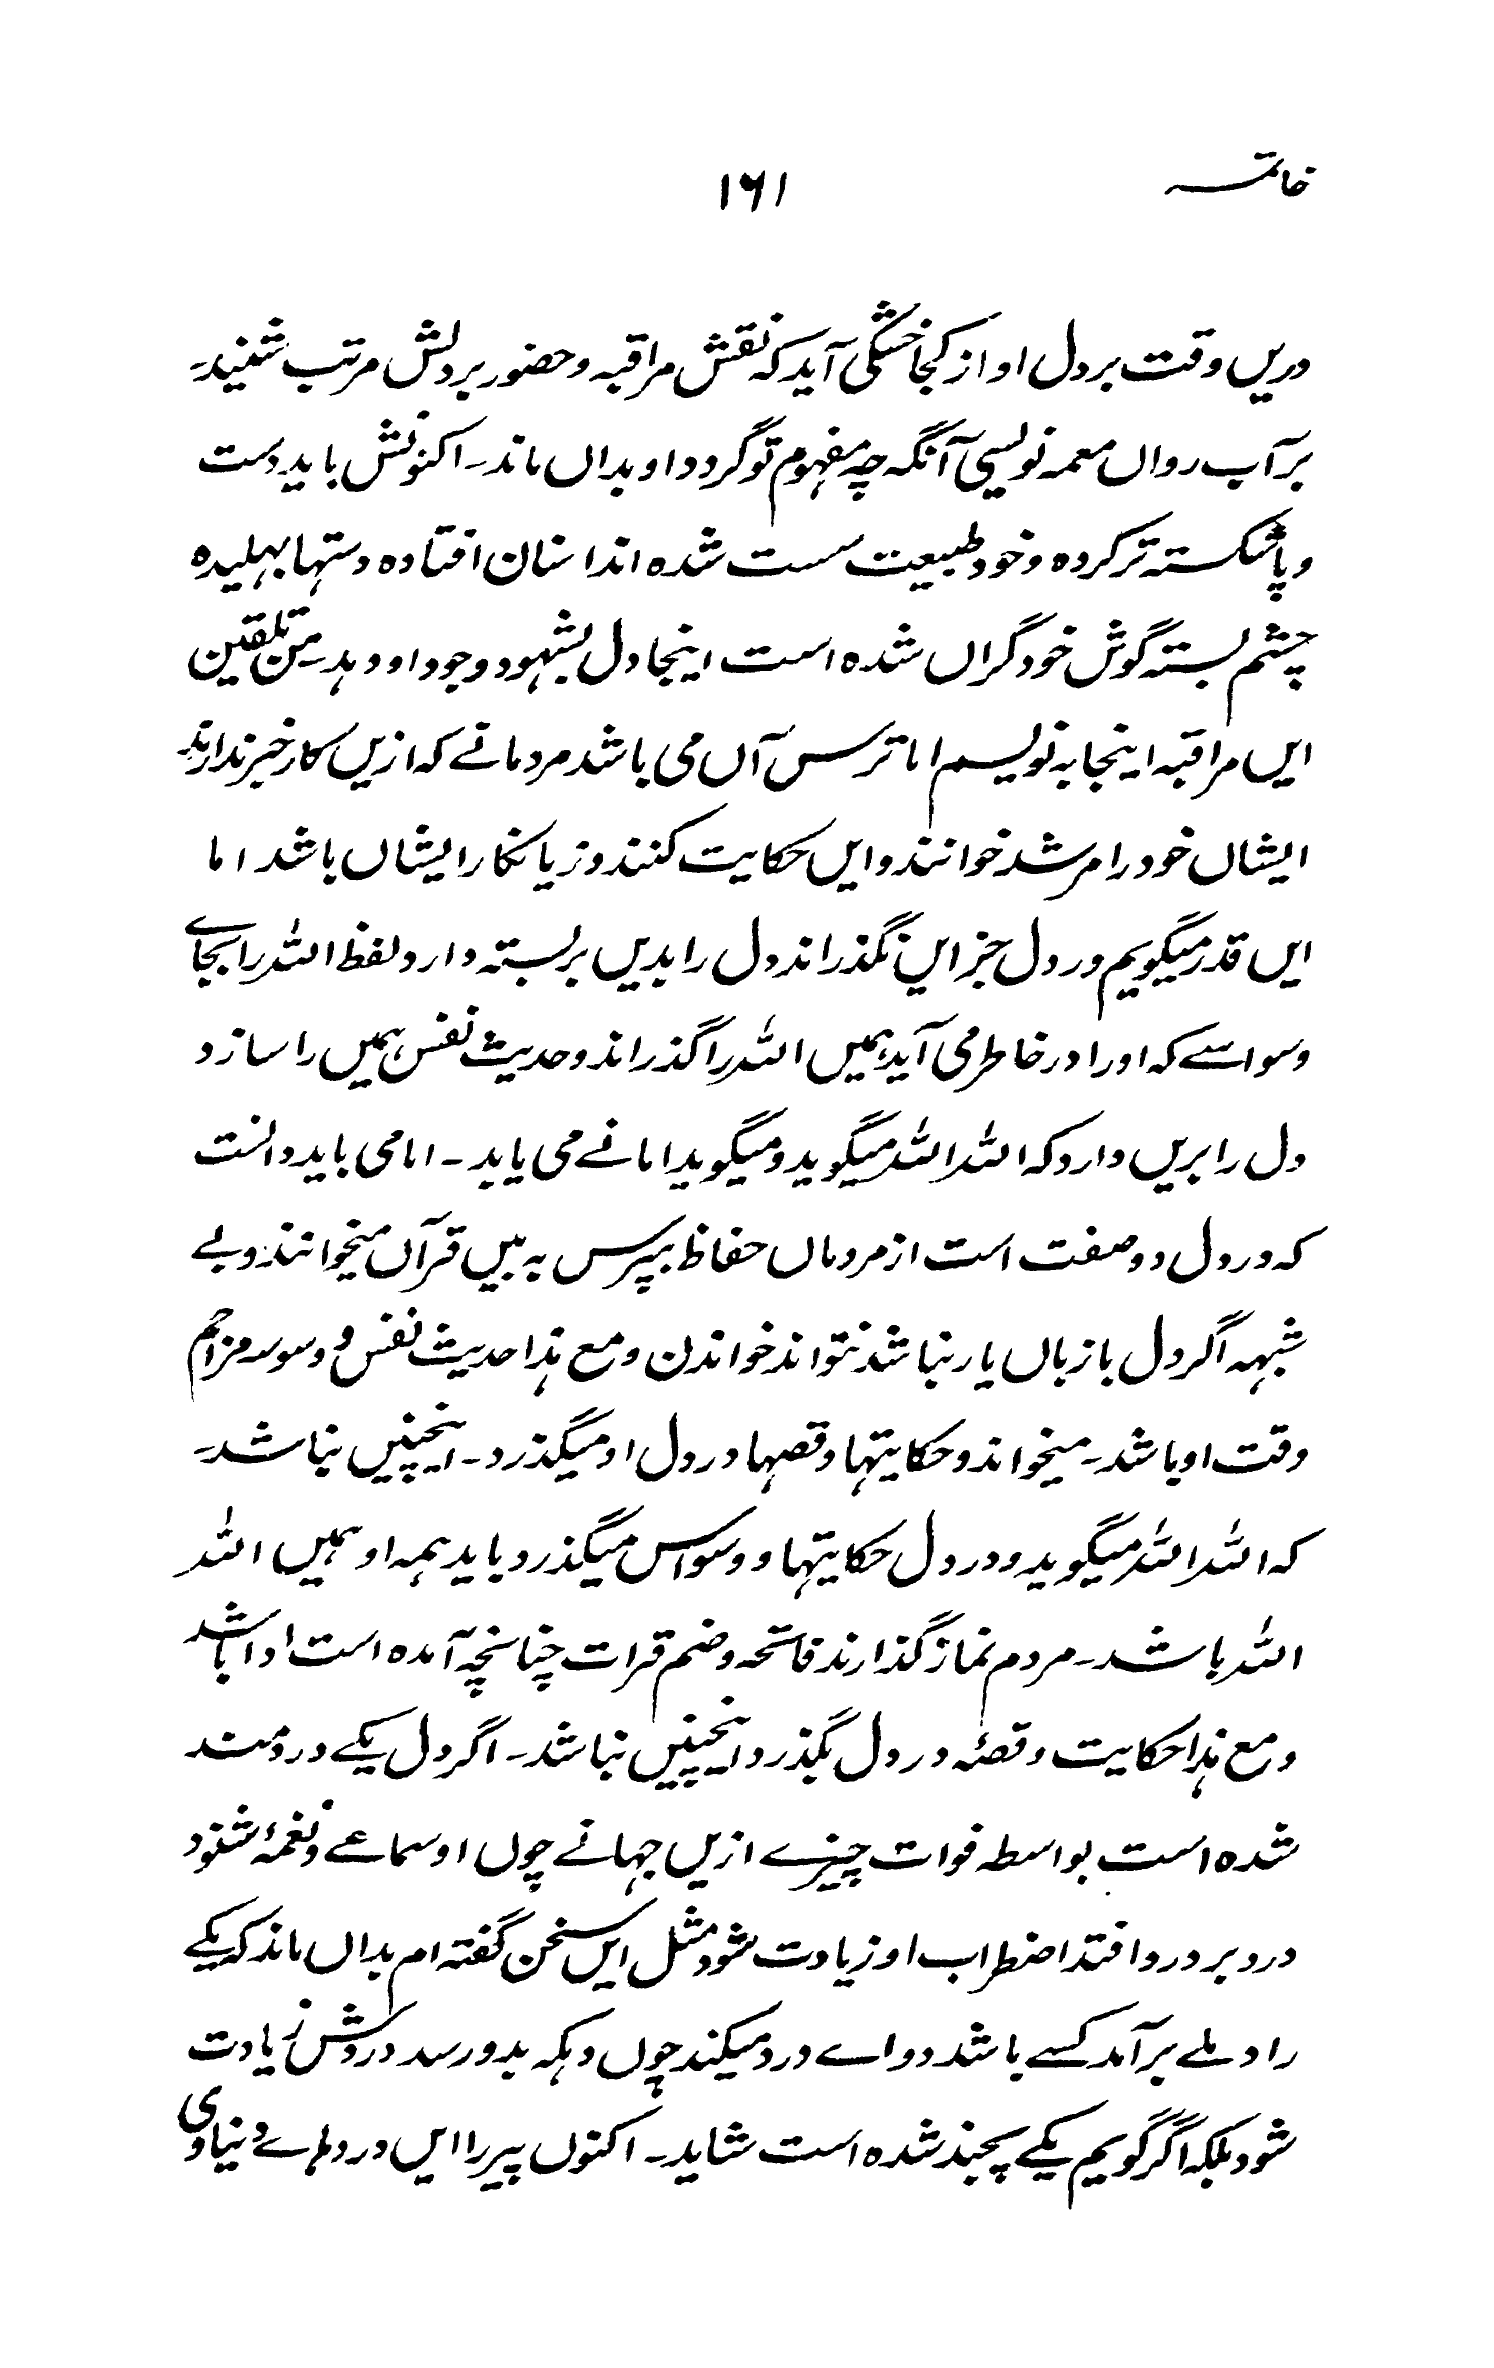 خاتمہ
۱۶۱
دریں وقت بر دل او از کجا خشکی آید کہ نقش مراقبہ و حضور بر دلش مرتب شنید۔
بر آب رواں معمہ نویسی آنگہ چہ مفہوم تو گردد او بداں ماند۔ اکنونش باید دست
و پا شکستہ تر کردہ و خود طبیعت سست شدہ اند اسنان افتادہ دستہا بہلیدہ
چشم بستہ گوش خود گراں شدہ است اینجا دل بشہود وجود او دہد۔ من تلقین
ایں مراقبہ اینجا بہ نویسم اما ترس آں می باشد مردمانے کہ ازیں کار خبر ندارند
ایشاں خود را مرشد خوانند و ایں حکایت کنند و زیانکار ایشاں باشد اما
ایں قدر میگویم در دل جز ایں نگذراند دل را بدیں بر بستہ دارد لفظ اللہ را بجاے
وسواسے کہ او را در خاطر می آید ہمیں اللہ را گذراند و حدیث نفس ہمیں را سازد
دل را بریں دارد کہ اللہ اللہ میگوید و میگوید امانے می یابد۔ اما می باید دانست
کہ در دل دو صفت است از مردماں حفاظ بپرس بہ بیں قرآں میخوانند و بے
شبہہ اگر دل با زباں یار نباشد نتواند خواندن و مع ہذا حدیث نفس و وسوسہ مزاحم
وقت او باشد۔ میخواند و حکایتہا و قصہا در دل او میگذرد۔ اینچنیں نباشد۔
کہ اللہ اللہ میگوید و در دل حکایتہا و وسواس میگذرد باید ہمہ او ہمیں اللہ
اللہ باشد۔ مردم نماز گذارند فاتحہ و ضم قرات چنانچہ آمدہ است ادا باشد
و مع ہذا حکایت و قصۂ در دل بگذرد اینچنیں نباشد۔ اگر دل یکے دردمند
شدہ است بواسطہ فوات چیزے ازیں جہانے چوں او سماعے و نغمۂ شنود
درد بر درد افتد اضطراب او زیادت شود مثل ایں سخن گفتہ ام بداں ماند کہ یکے
را دملے بر آمد کسے باشد دواے درد میکند چوں دہکہ بدو رسد دردش زیادت
شود بلکہ اگر گویم یکے پیچند شدہ است شاید۔ اکنوں پیر را ایں دردہاے دنیاوی